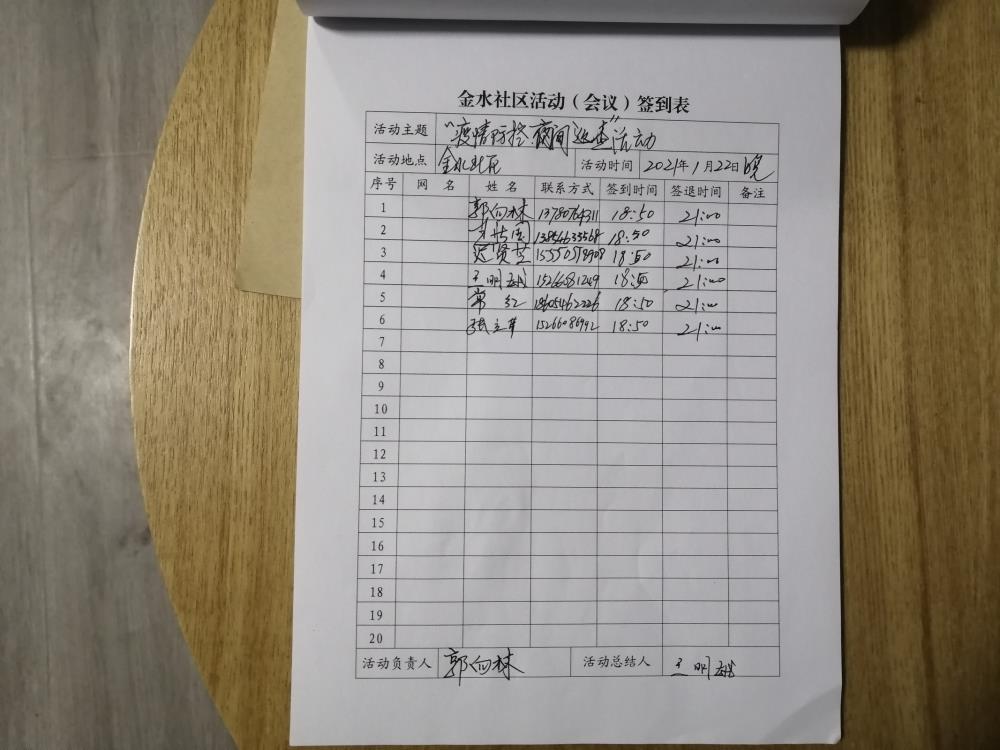 金水社区活动（会议）签到表
活动主题 "疫情防控夜间巡查"活动
活动地点 金水社区 活动时间 2021年1月22日晚
序号 网名 姓名 联系方式 签到时间 签退时间 备注
1 郭向林 18:50 21:00
2 18:50 21:00
3 18:50 21:00
4 王明 18:50 21:00
5 常红 18:50 21:00
6 张立华 15266086992 18:50 21:00
7
8
9
10
11
12
13
14
15
16
17
18
19
20
活动负责人 郭向林 活动总结人 王明